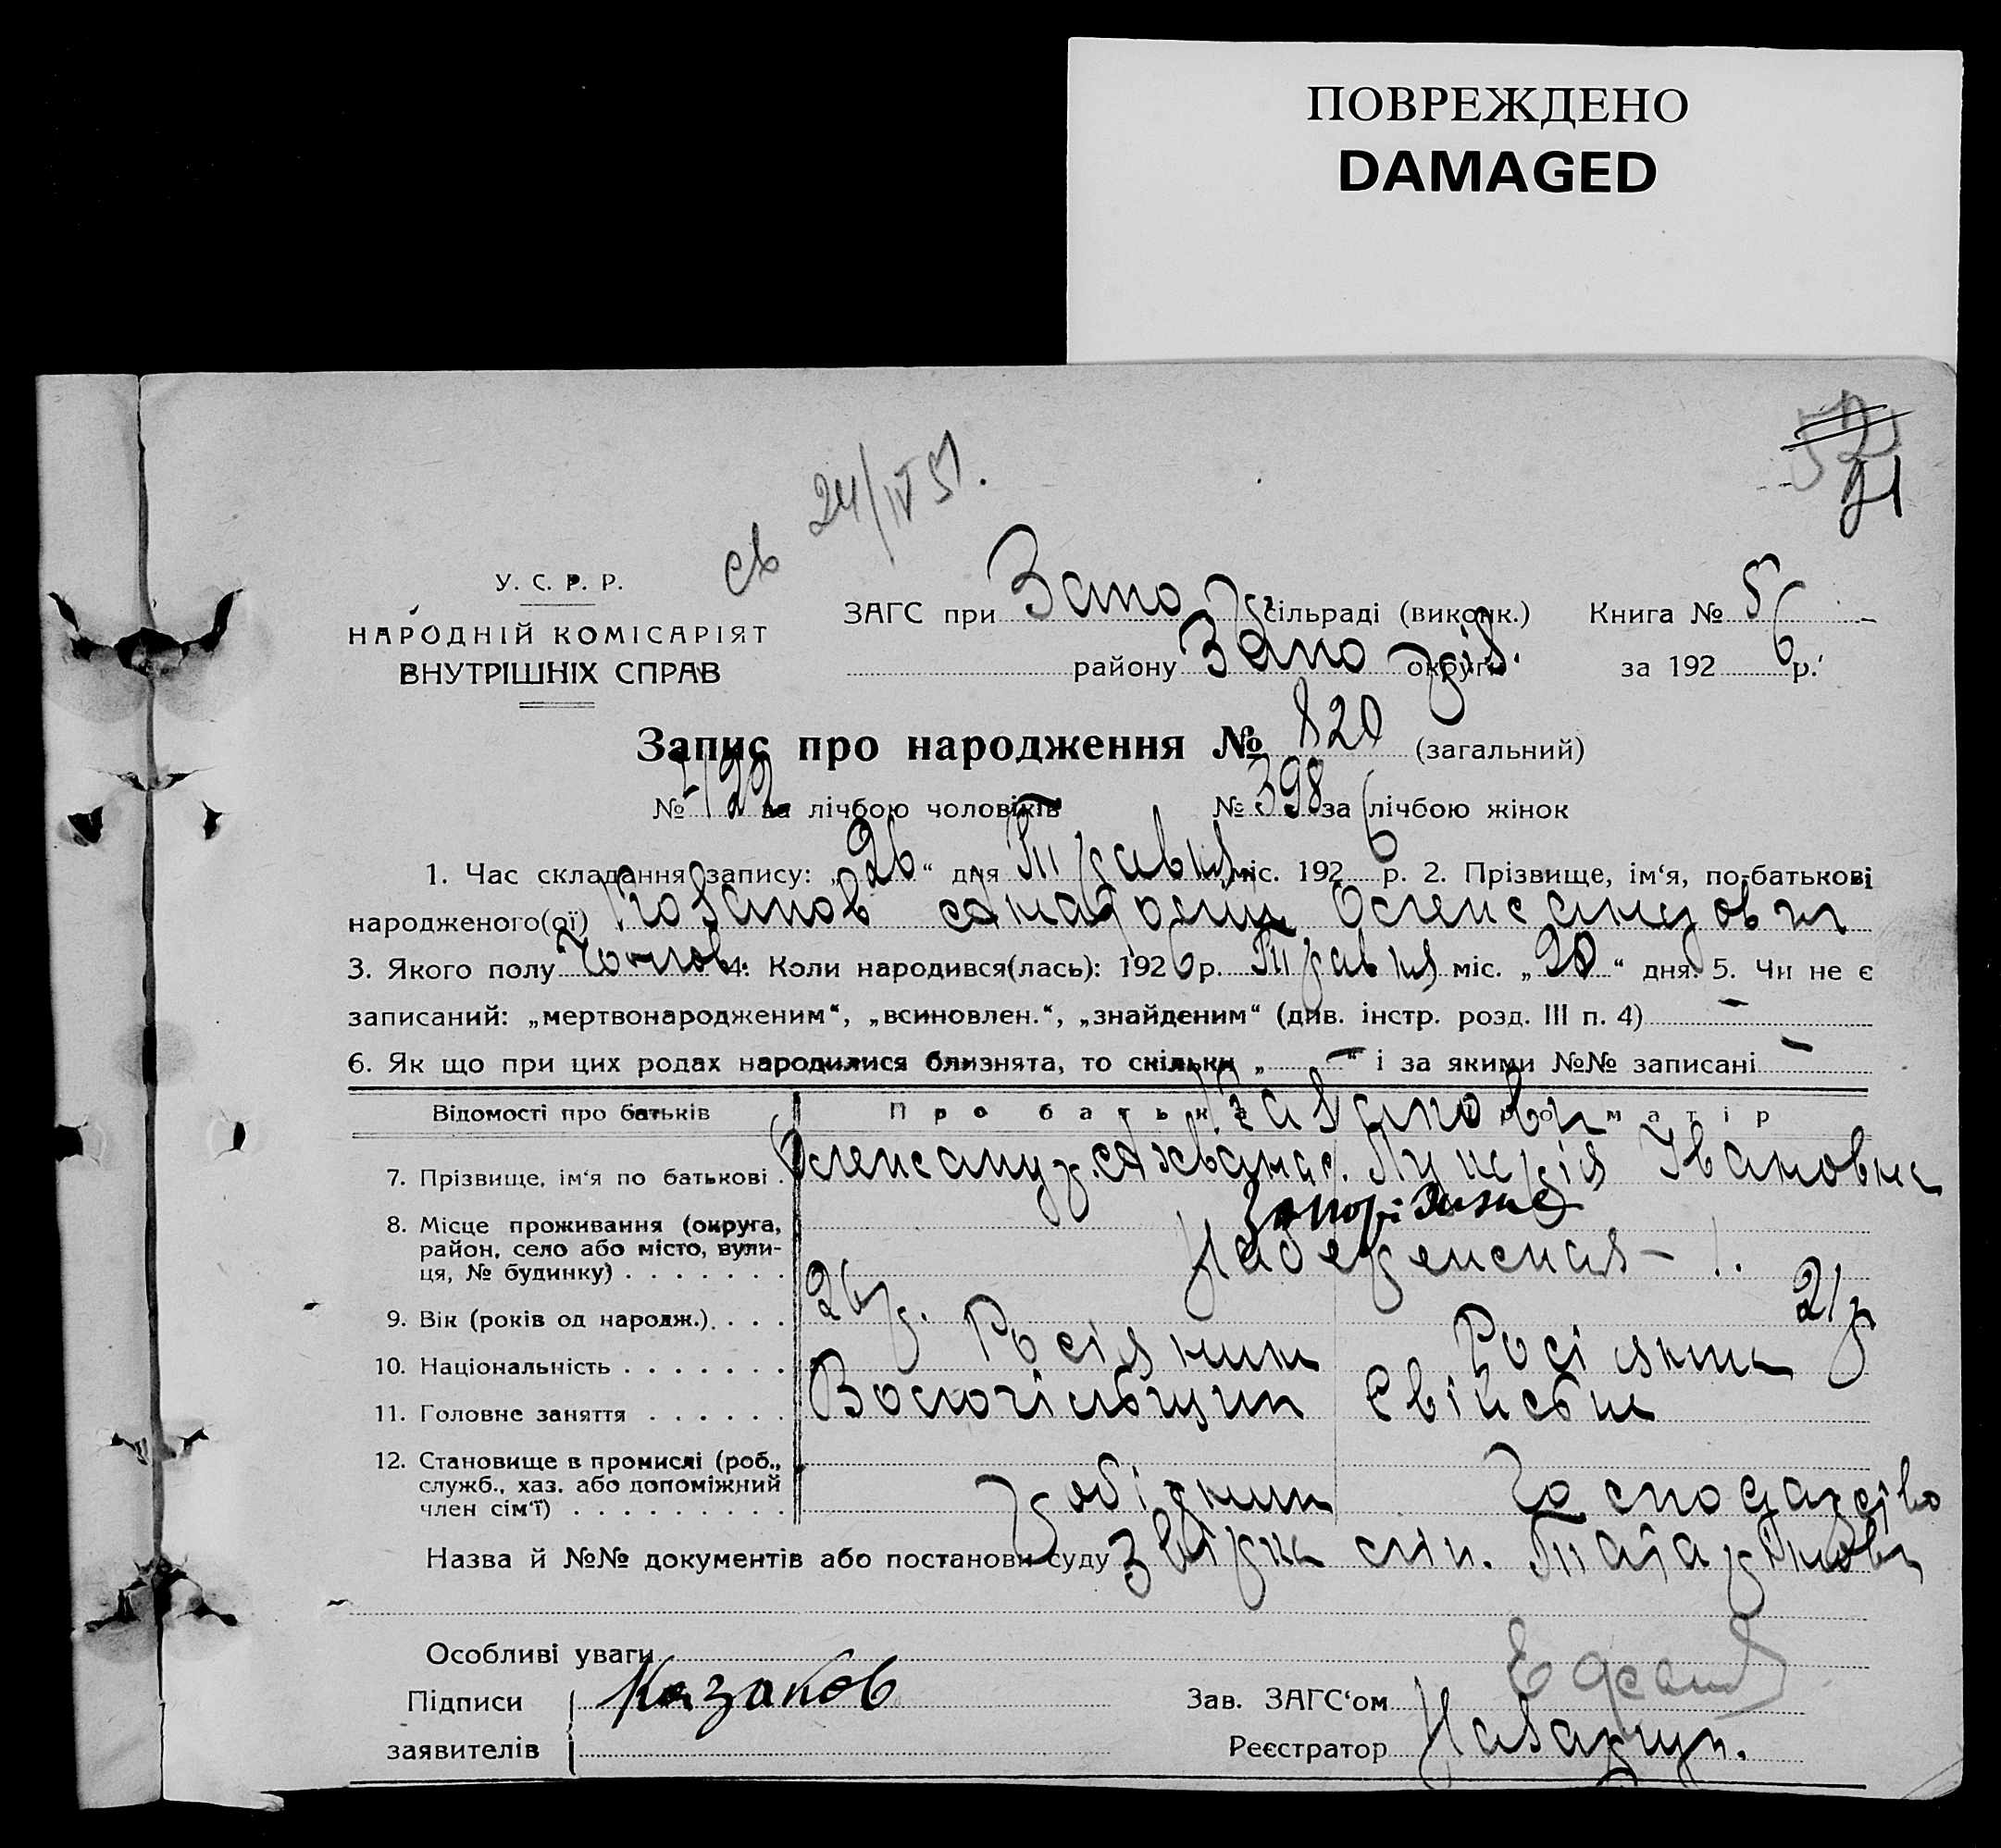 ПОВРЕЖДЕНО
DAMAGED
52
91
св 24/IV 51.
У. С. Р. Р.
НАРОДНІЙ КОМІСАРІЯТ
ВНУТРІШНІХ СПРАВ
ЗАГС при Запо сільраді (виконк.) Книга № 5
району Запоріз. округи за 1926 р.
Запис про народження № 820 (загальний)
№ 422 за лічбою чоловіків № 398 за лічбою жінок
1. Час складання запису: „26“ дня Травня міс. 1926 р. 2. Прізвище, ім‘я, по-батькові
народженого(ої) Козаков Анатолій Олександрович
3. Якого полу Чолов. 4. Коли народився(лась): 1926 р. Травня міс. „20“ дня. 5. Чи не є
записаний: „мертвонародженим“, „всиновлен.“, „знайденим“ (див. інстр. розд. III п. 4) –
6. Як що при цих родах народилися близнята, то скільки „–“ і за якими №№ записані –
Відомості про батьків Про батька Про матір
Казакови
7. Прізвище, ім‘я по батькові Олександр. Афанас. Лукерія Івановна
8. Місце проживання (округа,
район, село або місто, вули-
ця, № будинку) Запоріжжє
9. Вік (років од народж.) 26 р. 21 р
10. Національність Росіянин Росіянка
11. Головне заняття Свійське
12. Становище в промислі (роб.,
служб., хаз. або допоміжний
член сім‘ї) робітник Господарство
Назва й №№ документів або постанови суду Звірка
Особливі уваги
Підписи Казаков Зав. ЗАГС‘ом
заявителів Реєстратор